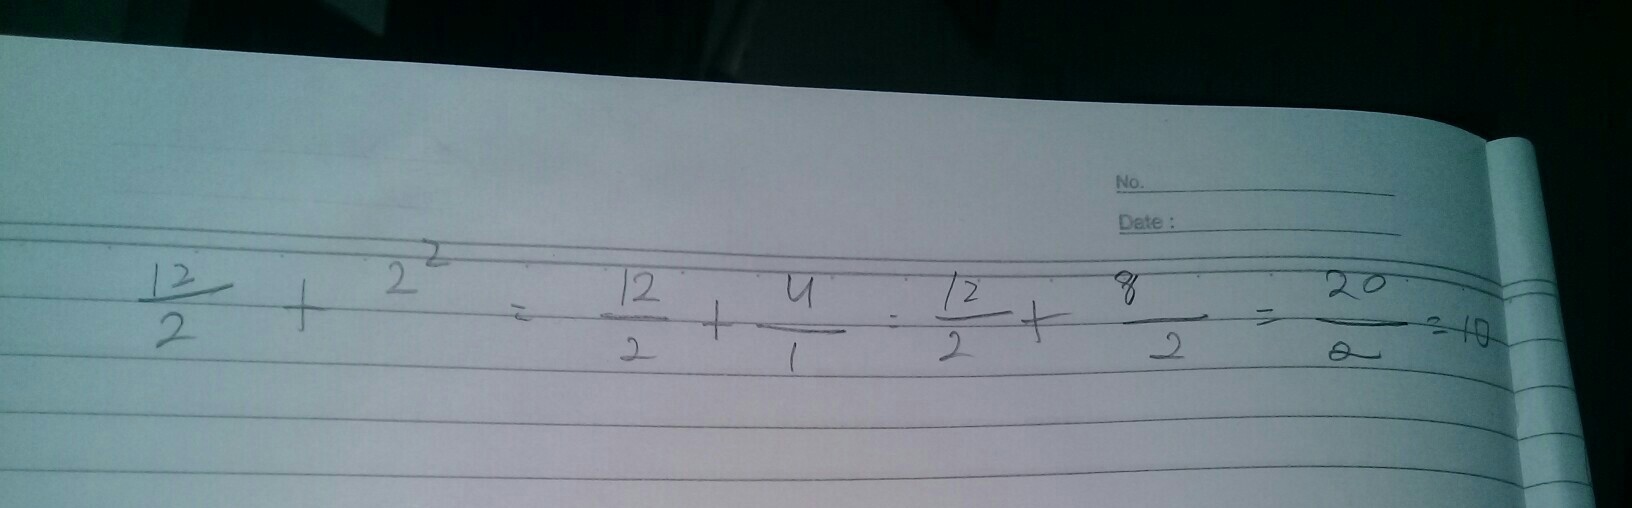 No.
Date :
12/2 + 2² = 12/2 + 4/1 = 12/2 + 8/2 = 20/2 = 10